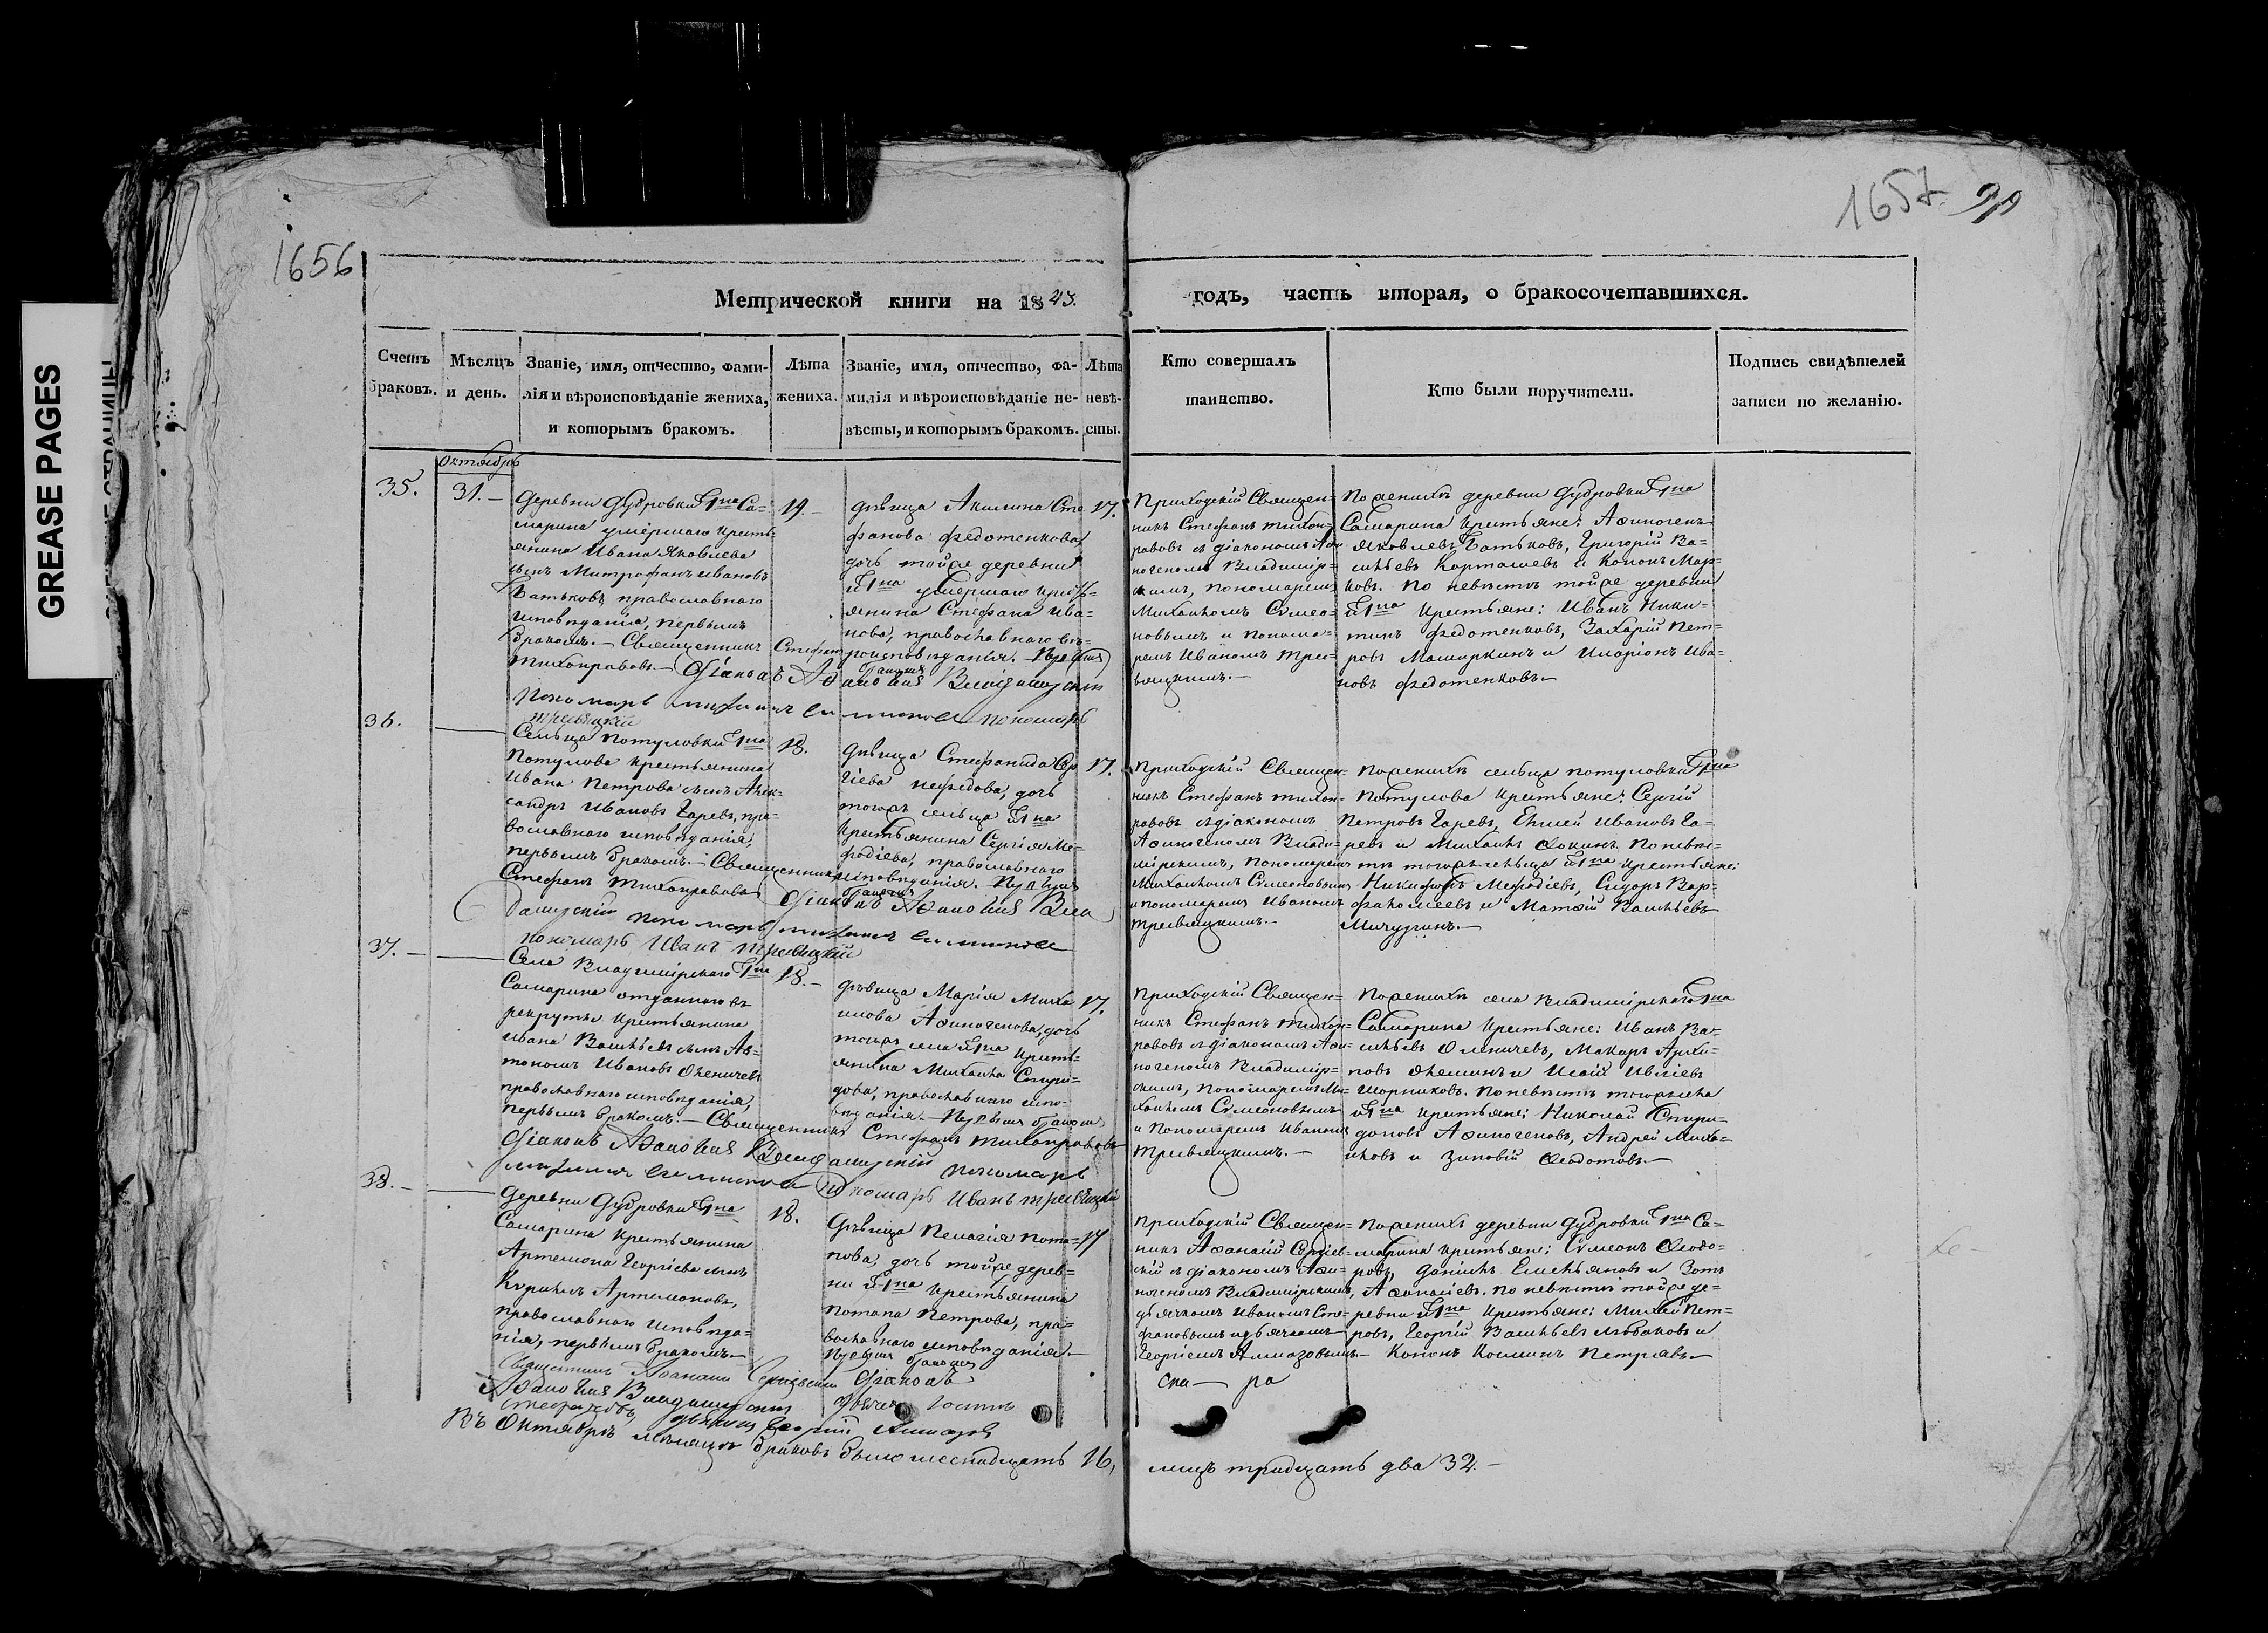 GREASE PAGES
1656
1657
Метрической книги на 1843.
годъ, часть вторая, о бракосочетавшихся.
Счетъ браковъ.
Мѣсяцъ и день.
Званіе, имя, отчество, фами-
лія и вѣроисповѣданіе жениха,
и которымъ бракомъ.
Лѣта
жениха.
Званіе, имя, отчество, фа-
милія и вѣроисповѣданіе не-
вѣсты, и которымъ бракомъ.
Лѣта
невѣ-
сты.
Кто совершалъ
таинство.
Кто были поручители.
Подпись свидѣтелей
записи по желанію.
Октябрь
35.
31.
Деревни Дубровки Гна Са-
марина умершаго кресть-
янина Ивана Яковлева
сынъ Митрофанъ Ивановъ
Батьковъ, православнаго
исповѣданія, первымъ
бракомъ. — Священникъ Стефанъ
Тихонравовъ. — Діаконъ
19.
дѣвица Акилина Сте
фанова Федотенкова,
дочь тойже деревни
Гна умершаго кресть-
янина Стефана Ива-
нова, православнаго вѣ-
роисповѣданія. Первымъ
бракомъ
17.
Пономарь
пономарь
Тресвяцкій
Приходскій Священ-
никъ Стефанъ Тихон-
равовъ съ діакономъ Аѳи
ногеномъ Владимір-
скимъ, пономаремъ
Михаиломъ Симео-
новымъ и понома-
ремъ Иваномъ Трес-
вяцкимъ. —
По женихѣ деревни Дубровки Гна
Самарина крестьяне: Аѳиногенъ
Яковлевъ Батьковъ, Григорій Ва-
сильевъ Карташевъ и Кононъ Мар-
ковъ. По невѣстѣ тойже деревни
Гна крестьяне: Иванъ Ники-
тинъ Федотенковъ, Захарій Пет-
ровъ Маширкинъ и Иларіонъ Ива-
новъ Федотенковъ. —
36.
Сельца Потуловки Гна
Потулова крестьянина
Ивана Петрова сынъ Алек-
сандръ Ивановъ Царевъ, пра-
вославнаго исповѣданія,
первымъ бракомъ. — Священникъ
Стефанъ Тихонравовъ Діаконъ
18.
дѣвица Стефанида Сер
гіева Нефедова, дочь
тогожъ сельца Гна
крестьянина Сергія Ме-
фодіева, православнаго
исповѣданія. Первымъ
бракомъ
17.
пономарь Иванъ Тресвяцкій
Приходскій Священ-
никъ Стефанъ Тихон-
равовъ съ діакономъ
Аѳиногеномъ Влади-
мірскимъ, пономаремъ
Михаиломъ Симеоновымъ
и пономаремъ Иваномъ
Тресвяцкимъ. —
По женихѣ сельца Потуловки Гна
Потулова крестьяне: Сергій
Петровъ Царевъ, Евсей Ивановъ Ца-
ревъ и Михаилъ Ѳокинъ. По невѣс-
тѣ тогожъ сельца Гна крестьяне:
Никифоръ Мефодіевъ, Сидоръ Вар-
фаломеевъ и Матвій Васильевъ
Мичуринъ. —
37.
Села Владимірскаго Гна
Самарина отданнаго въ
рекруты крестьянина
Ивана Васильева сынъ Ав-
тономъ Ивановъ Оленичевъ
православнаго исповѣданія,
первымъ бракомъ. — Священникъ Стефанъ Тихонравовъ
Діаконъ
18.
дѣвица Марія Миха
илова Аѳиногенова, дочь
тогожъ села Гна кресть-
янина Михаила Спири-
дова, православнаго испо-
вѣданія. — Первымъ бракомъ
17.
Пономарь
Пономарь Иванъ Тресвяцкій
Приходскій Священ-
никъ Стефанъ Тихон-
равовъ съ діакономъ Аѳи-
ногеномъ Владимір-
скимъ, пономаремъ Ми-
хаиломъ Симеоновымъ
и Пономаремъ Иваномъ
Тресвяцкимъ. —
По женихѣ села Владимірскаго Гна
Самарина крестьяне: Иванъ Ва-
сильевъ Оленичевъ, Макаръ Архи-
повъ и Исай
Шорниковъ. По невѣстѣ тогожъ села
Гна крестьяне: Николай Спири-
доновъ Аѳиногеновъ, Андрей Миха-
иловъ и Зиновій Ѳедотовъ. —
38.
Деревни Дубровки Гна
Самарина крестьянина
Артемона Георгіева сынъ
Кирилъ Артемоновъ,
православнаго исповѣда-
нія, первымъ бракомъ. —
Священникъ Діаконъ
18.
дѣвица Пелагія Пота-
пова, дочь тойже дерев-
ни Гна крестьянина
Потапа Петрова, пра-
вославнаго исповѣданія. —
Первымъ бракомъ
17
Приходскій Священ-
никъ Аѳанасій Сергіев-
скій съ діакономъ Аѳи-
ногеномъ Владимірскимъ,
дьячкомъ Иваномъ Сте-
фановымъ и дьячкомъ
Георгіемъ Алмазовымъ. —
По женихѣ деревни Дубровки Гна Са-
марина крестьяне: Симеонъ Ѳеодо-
ровъ, Даніилъ Емельяновъ и Зотъ
Аѳанасіевъ. По невѣстѣ тойже де-
ревни Гна крестьяне: Михей Пет-
ровъ, Георгій Васильевъ и
Кононъ Козминъ Петряевъ. —
дьячекъ Георгій Алмазовъ
Въ Октябрѣ мѣсяцѣ браковъ было шеснадцать 16,
лицъ тридцать два 32. —